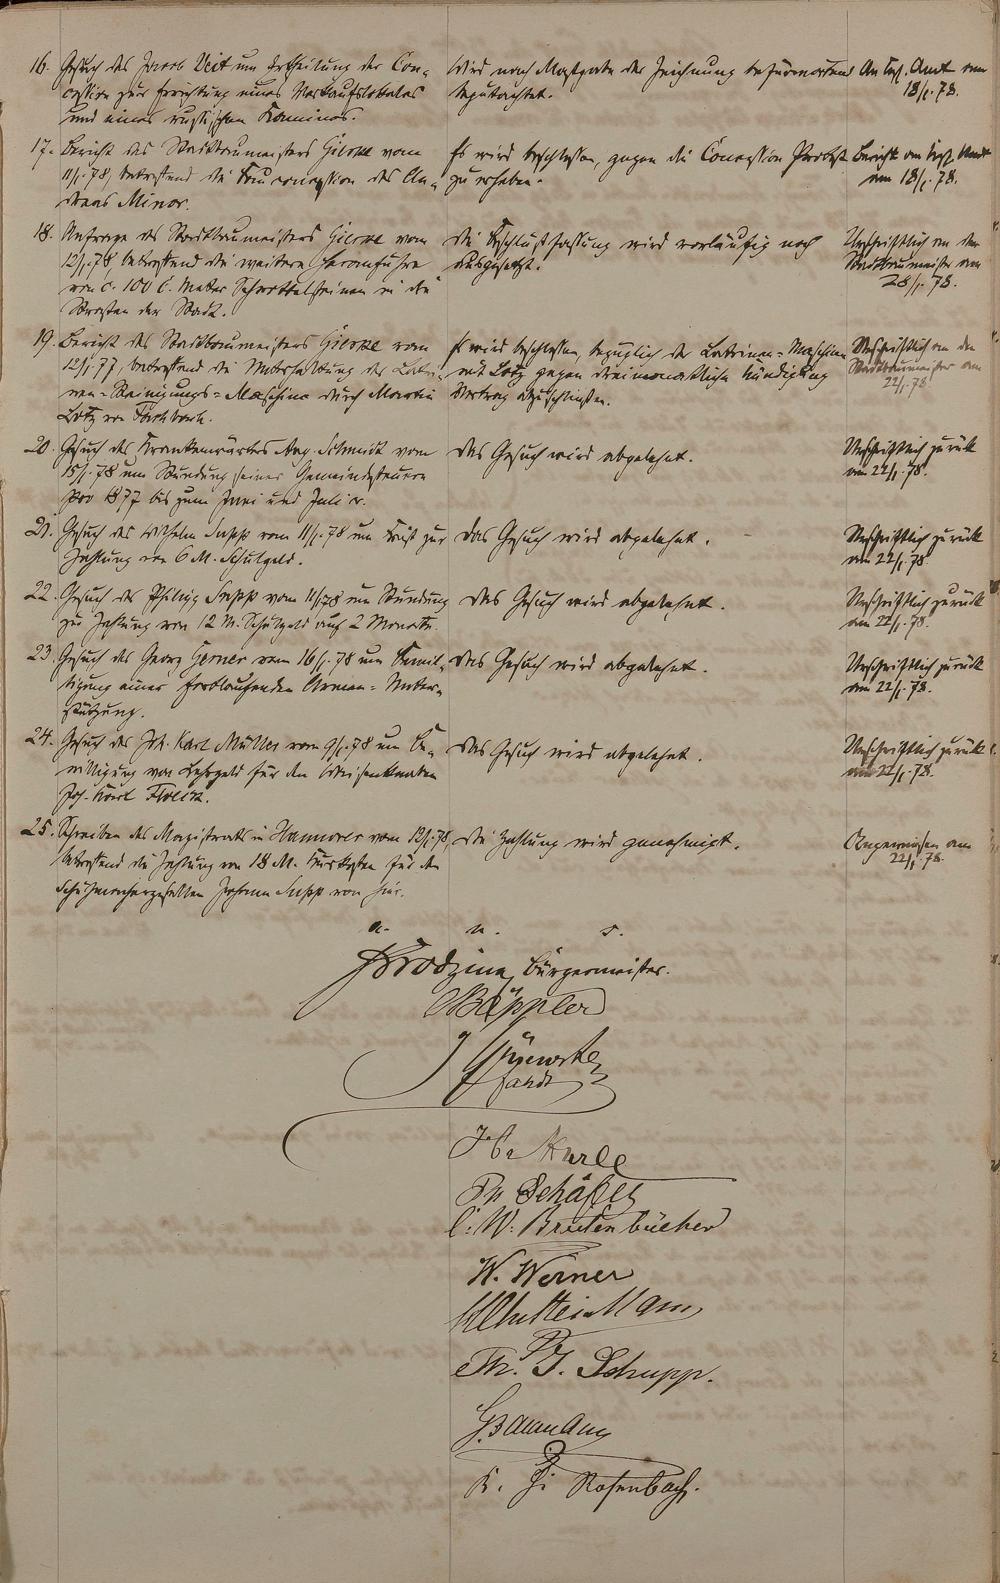 16. Gesuch des Jacob Veit um Ertheilung der Con-
cession zur Errichtung eines Verkaufslokales
und eines russischen Kamines.
Wird nach Maßgabe der Zeichnung befürwortend
begutachtet.
An Kgl. Amt am
18/1. 78.
17. Bericht des Stadtbaumeisters vom
11/1. 78, betreffend die Bauconcession des An-
dreas Minor.
Es wird beschlossen, gegen die Concession Protest
zu erheben.
Bericht an Kgl. Amt
am 18/1. 78.
18. Anfrage des Stadtbaumeisters vom
12/1. 78 betreffend die weitere Heranfuhr
von c. 100 C. Meter Schrottelsteinen in die
Straßen der Stadt.
Die Beschlußfassung wird vorläufig noch
ausgesetzt.
Urschriftlich an den
Stadtbaumeister am
28/1. 78.
19. Bericht des Stadtbaumeisters vom
12/1. 77, betreffend die Unterhaltung der Latri-
nen-Reinigungs-Maschine durch Martin
Lotz von Fachbach.
Es wird beschlossen, bezüglich der Latrinen-Maschine
mit Lotz gegen dreimonatliche Kündigung
Vertrag abzuschließen.
Urschriftlich an den
Stadtbaumeister am
22/1. 78.
20. Gesuch des Krankenwärters Aug. Schmidt vom
15/1. 78 um Stundung seiner Gemeindesteuern
pro 1877 bis zum Juni und Juli cr.
Das Gesuch wird abgelehnt.
Urschriftlich zurück
am 22/1. 78.
21. Gesuch des Wilhelm Supp vom 11/1. 78 um Frist zur
Zahlung von 6 M. Schulgeld.
Das Gesuch wird abgelehnt.
Urschriftlich zurück
am 22/1. 78.
22. Gesuch des Philipp Supp vom 11/1 78 um Stundung
zur Zahlung von 12 M. Schulgeld auf 2 Monate.
Das Gesuch wird abgelehnt.
Urschriftlich zurück
am 22/1. 78.
23. Gesuch des Georg Gerner vom 16/1. 78 um Bewil-
ligung einer fortlaufenden Armen-Unter-
stützung.
Das Gesuch wird abgelehnt.
Urschriftlich zurück
am 22/1. 78.
24. Gesuch des Joh. Karl Müller vom 9/1. 78 um Be-
willigung von Lehrgeld für den Waisenknaben
Joh. Karl
Das Gesuch wird abgelehnt.
Urschriftlich zurück
am 22/1. 78.
25. Schreiben des Magistrats in Hannover vom 12/1. 78,
betreffend die Zahlung von 18 M. Kurkosten für den
Schuhmachergesellen Johann Supp von hier.
Die Zahlung wird genehmigt.
Angewiesen am
22/1. 78.
a. u. s.
Bürgermeister.
Bäppler
Ph. Schäfer
C. W. Breitenbücher
W. Werner
Th. J. Schupp.
G. Baumann
K. Rosenbach.